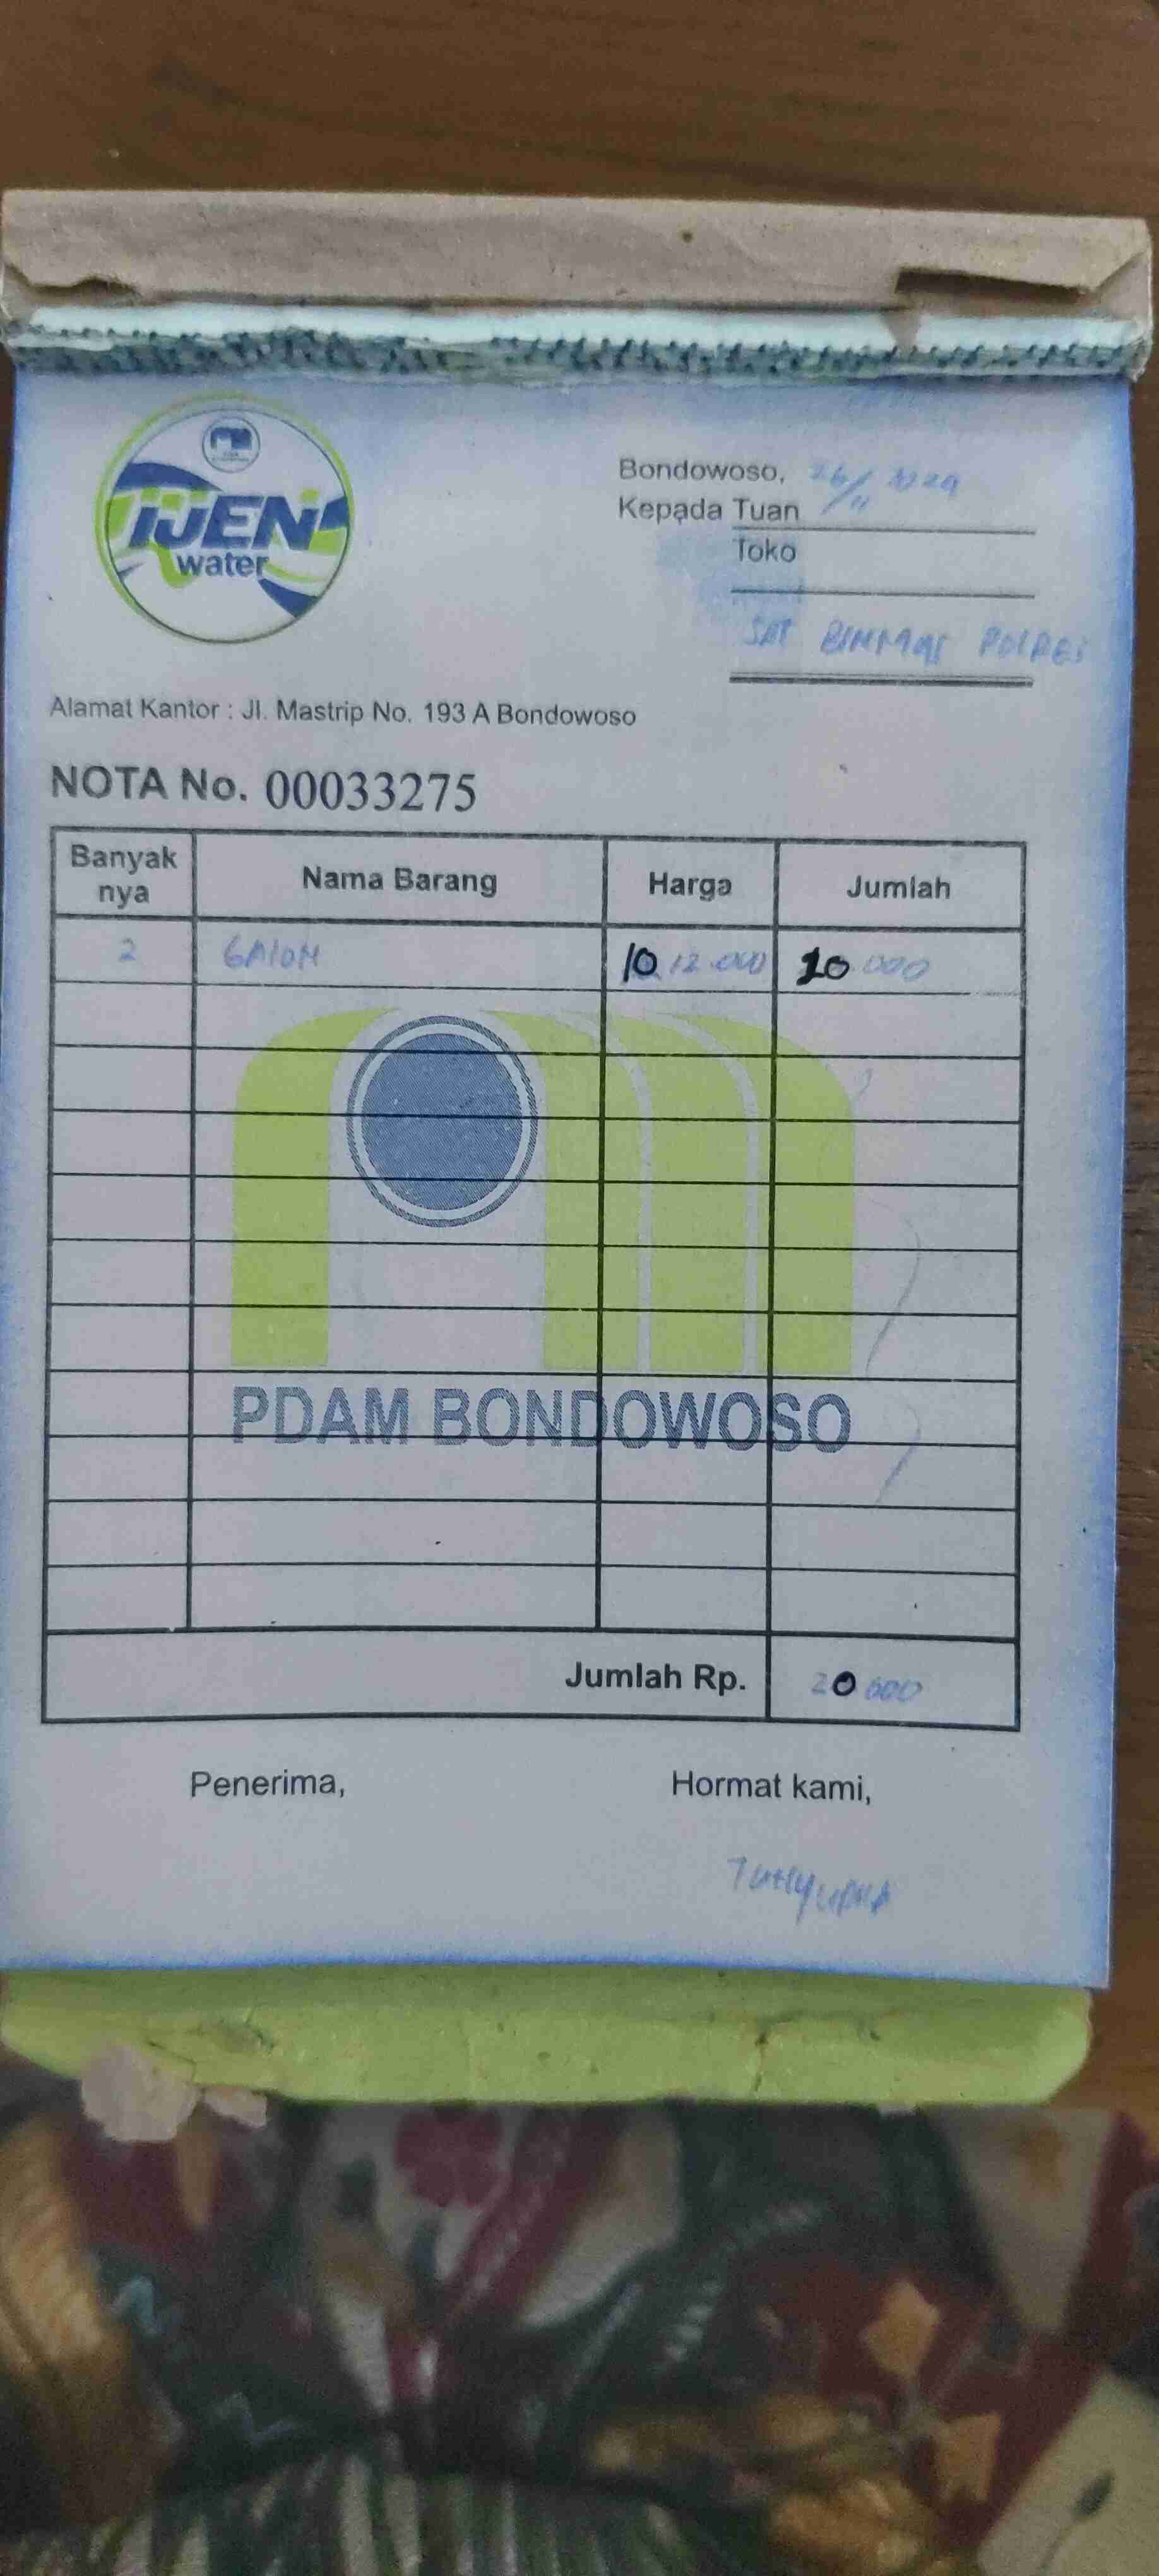 IJEN
water
Bondowoso, 26/11 2024
Kepada Tuan
Toko
SAT BINMAS POLRES
Alamat Kantor : Jl. Mastrip No. 193 A Bondowoso
NOTA No. 00033275
Banyak nya Nama Barang Harga Jumlah
2 GALON 10 12.000 20 000
PDAM BONDOWOSO
Jumlah Rp. 20 000
Penerima, Hormat kami,